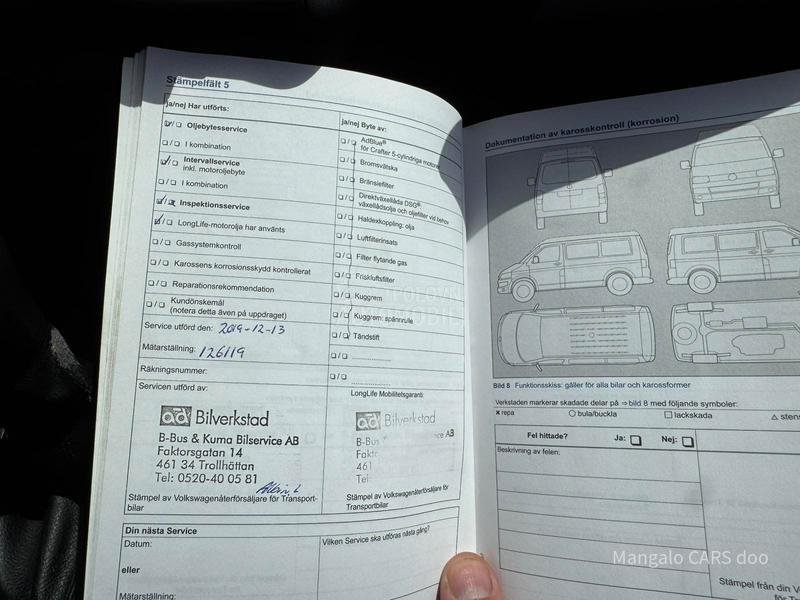 Stämpelfält 5
ja/nej Har utförts:
Oljebytesservice
I kombination
Intervallservice
inkl. motoroljebyte
I kombination
Inspektionsservice
LongLife-motorolja har använts
Gassystemkontroll
Karossens korrosionsskydd kontrollerat
Reparationsrekommendation
Kundönskemål
(notera detta även på uppdraget)
Service utförd den: 2019-12-13
Mätarställning: 126119
Räkningsnummer:
Servicen utförd av:
ad Bilverkstad
B-Bus & Kuma Bilservice AB
Faktorsgatan 14
461 34 Trollhättan
Tel: 0520-40 05 81
Stämpel av Volkswagenåterförsäljare för Transport-
bilar
ja/nej Byte av:
AdBlue®
för Crafter 5-cylindriga motorer
Bromsvätska
Bränslefilter
Direktväxellåda DSG®:
växellådsolja och oljefilter vid behov
Haldexkoppling: olja
Luftfilterinsats
Filter flytande gas
Friskluftsfilter
Kuggrem
Kuggrem: spännrulle
Tändstift
LongLife Mobilitetsgaranti:
ad Bilverkstad
B-Bus
ce AB
461
Tel
Stämpel av Volkswagenåterförsäljare för
Transportbilar
Din nästa Service
Datum:
eller
Mätarställning:
Vilken Service ska utföras nästa gång?
Dokumentation av karosskontroll (korrosion)
Bild 8 Funktionsskiss: gäller för alla bilar och karossformer
Verkstaden markerar skadade delar på ⇒ bild 8 med följande symboler:
× repa
○ bula/buckla
□ lackskada
△ stens
Fel hittade?
Ja:
Nej:
Beskrivning av felen:
Stämpel från din V
för Tra
Mangalo CARS doo